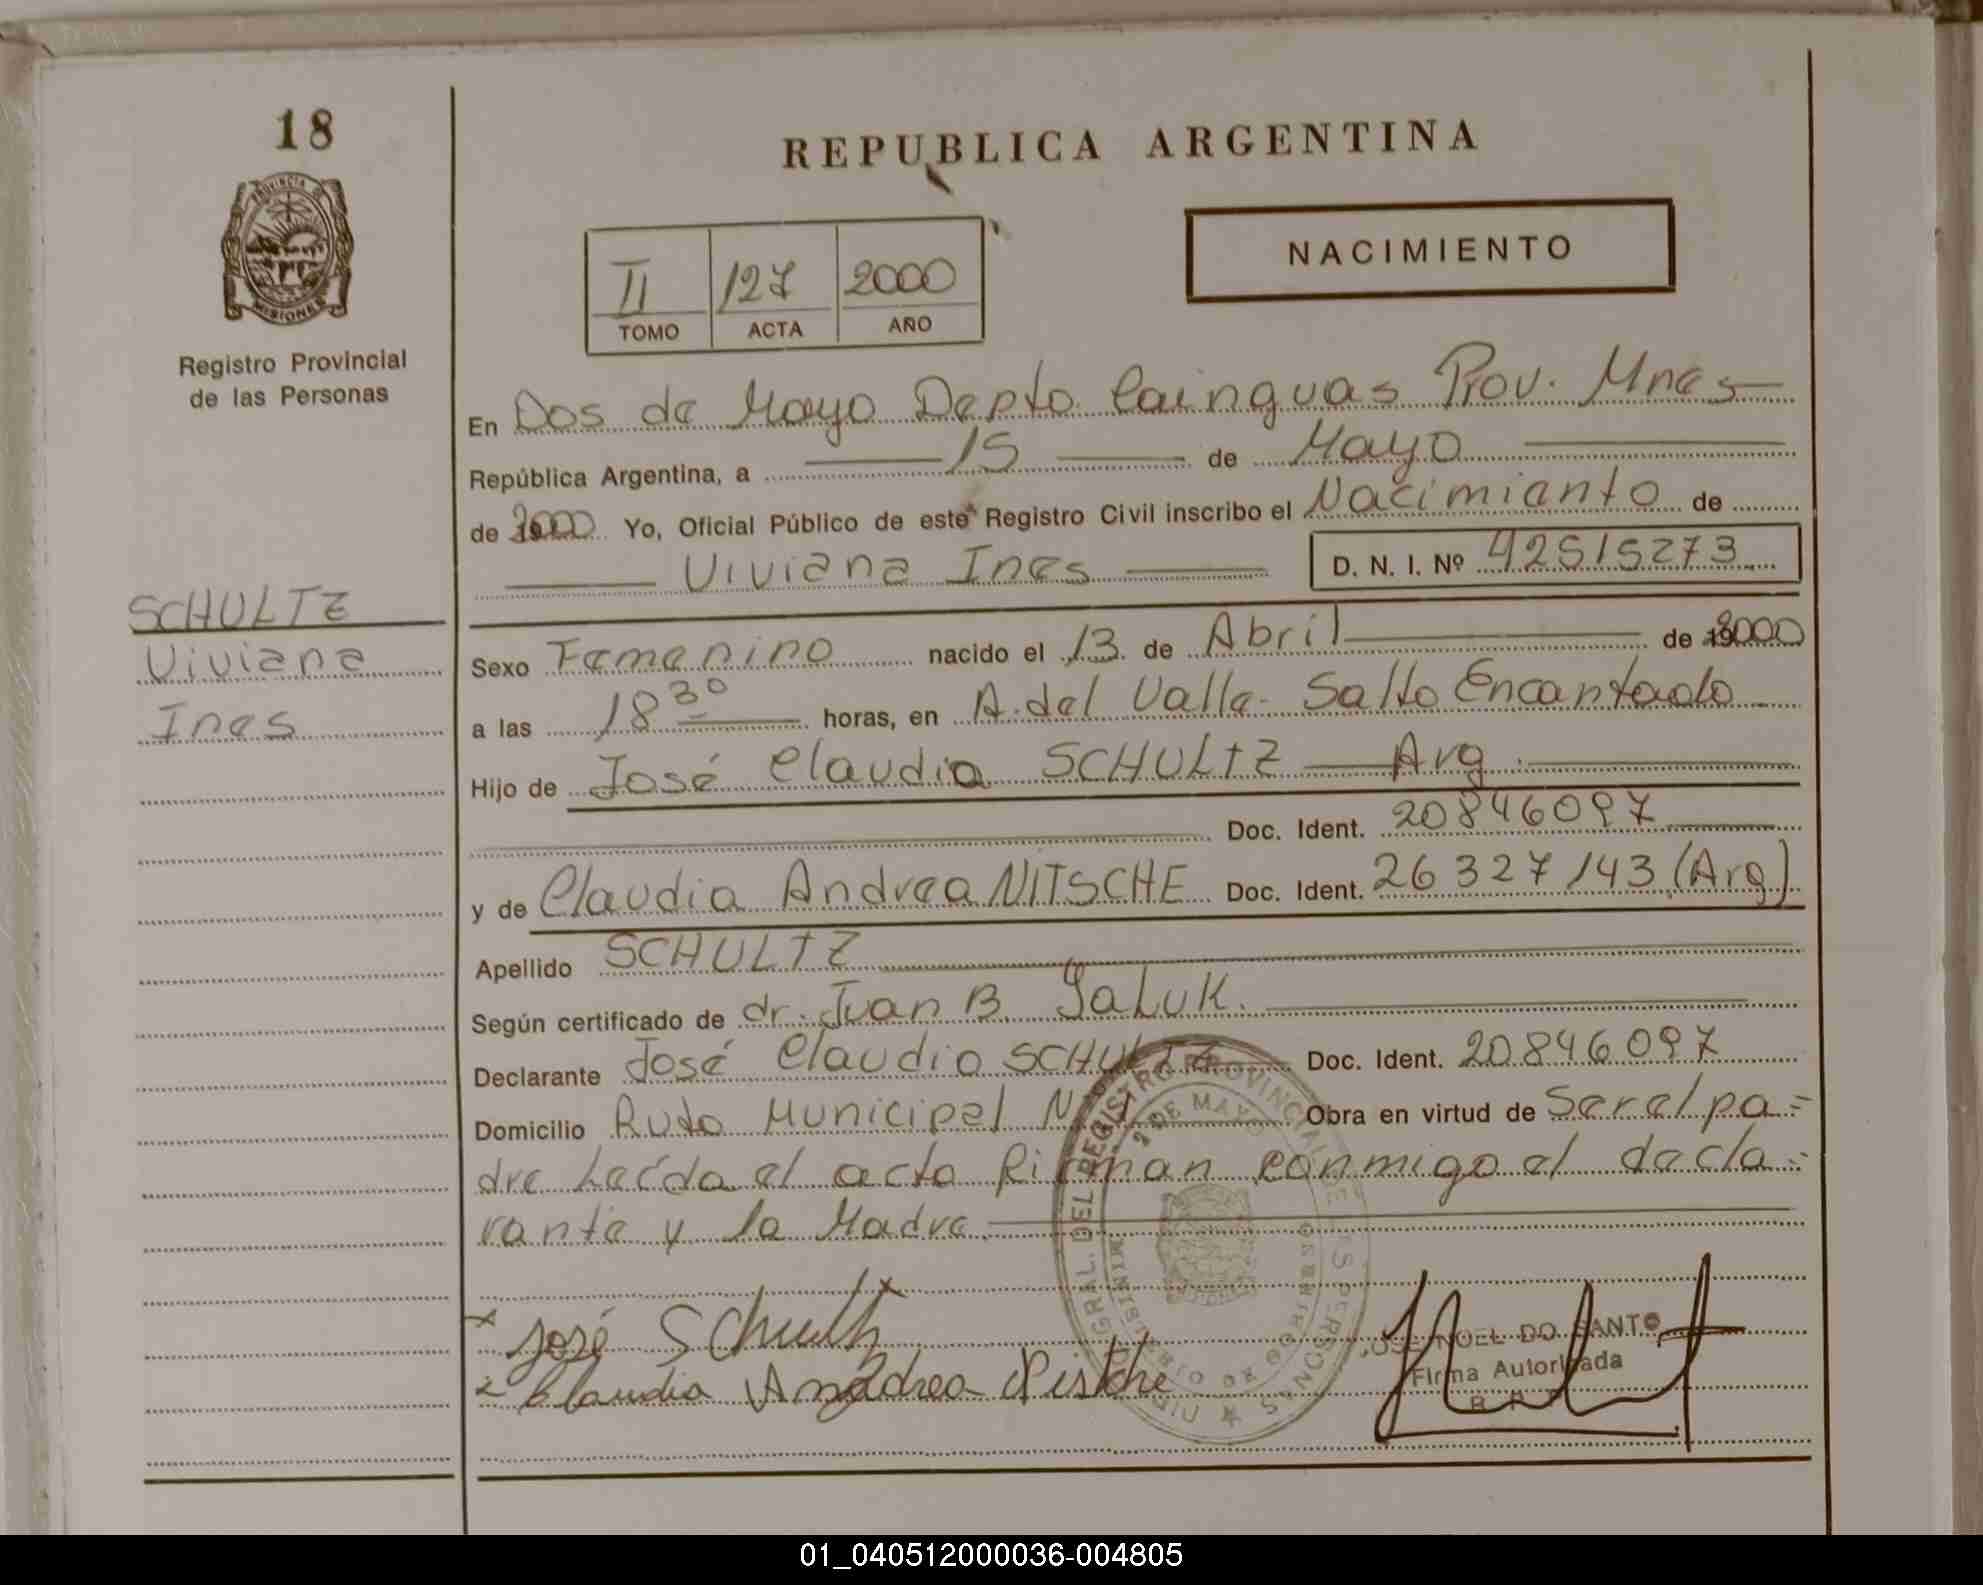 18
REPUBLICA ARGENTINA
PROVINCIA DE MISIONES
Registro Provincial
de las Personas
II 127 2000
TOMO ACTA AÑO
NACIMIENTO
En Dos de Mayo Depto Cainguas Prov. Mnes
República Argentina, a 15 de Mayo
de 2000 Yo, Oficial Público de este Registro Civil inscribo el Nacimiento de
Viviana Ines D. N. I. Nº 42515273
SCHULTZ
Viviana
Ines
Sexo Femenino nacido el 13 de Abril de 2000
a las 18 30 horas, en A. del Valle - Salto Encantado
Hijo de José Claudio SCHULTZ Arg.
Doc. Ident. 20846097
y de Claudia Andrea NITSCHE Doc. Ident. 26 327 143 (Arg)
Apellido SCHULTZ
Según certificado de dr. Juan B.
Declarante José Claudio SCHULTZ Doc. Ident. 20846097
Domicilio Ruta Municipal Nº 1 Obra en virtud de Ser el pa=
dre Leída el acta Firman conmigo el decla=
rante y la Madre.
José Schultz
Claudia Andrea Nistche
GRAL. DEL REGISTRO PROVINCIAL DE LAS PERSONAS
2 DE MAYO
MINISTERIO DE GOBIERNO
JOSE NOEL DO SANTO
Firma Autorizada
R. P. P.
01_040512000036-004805